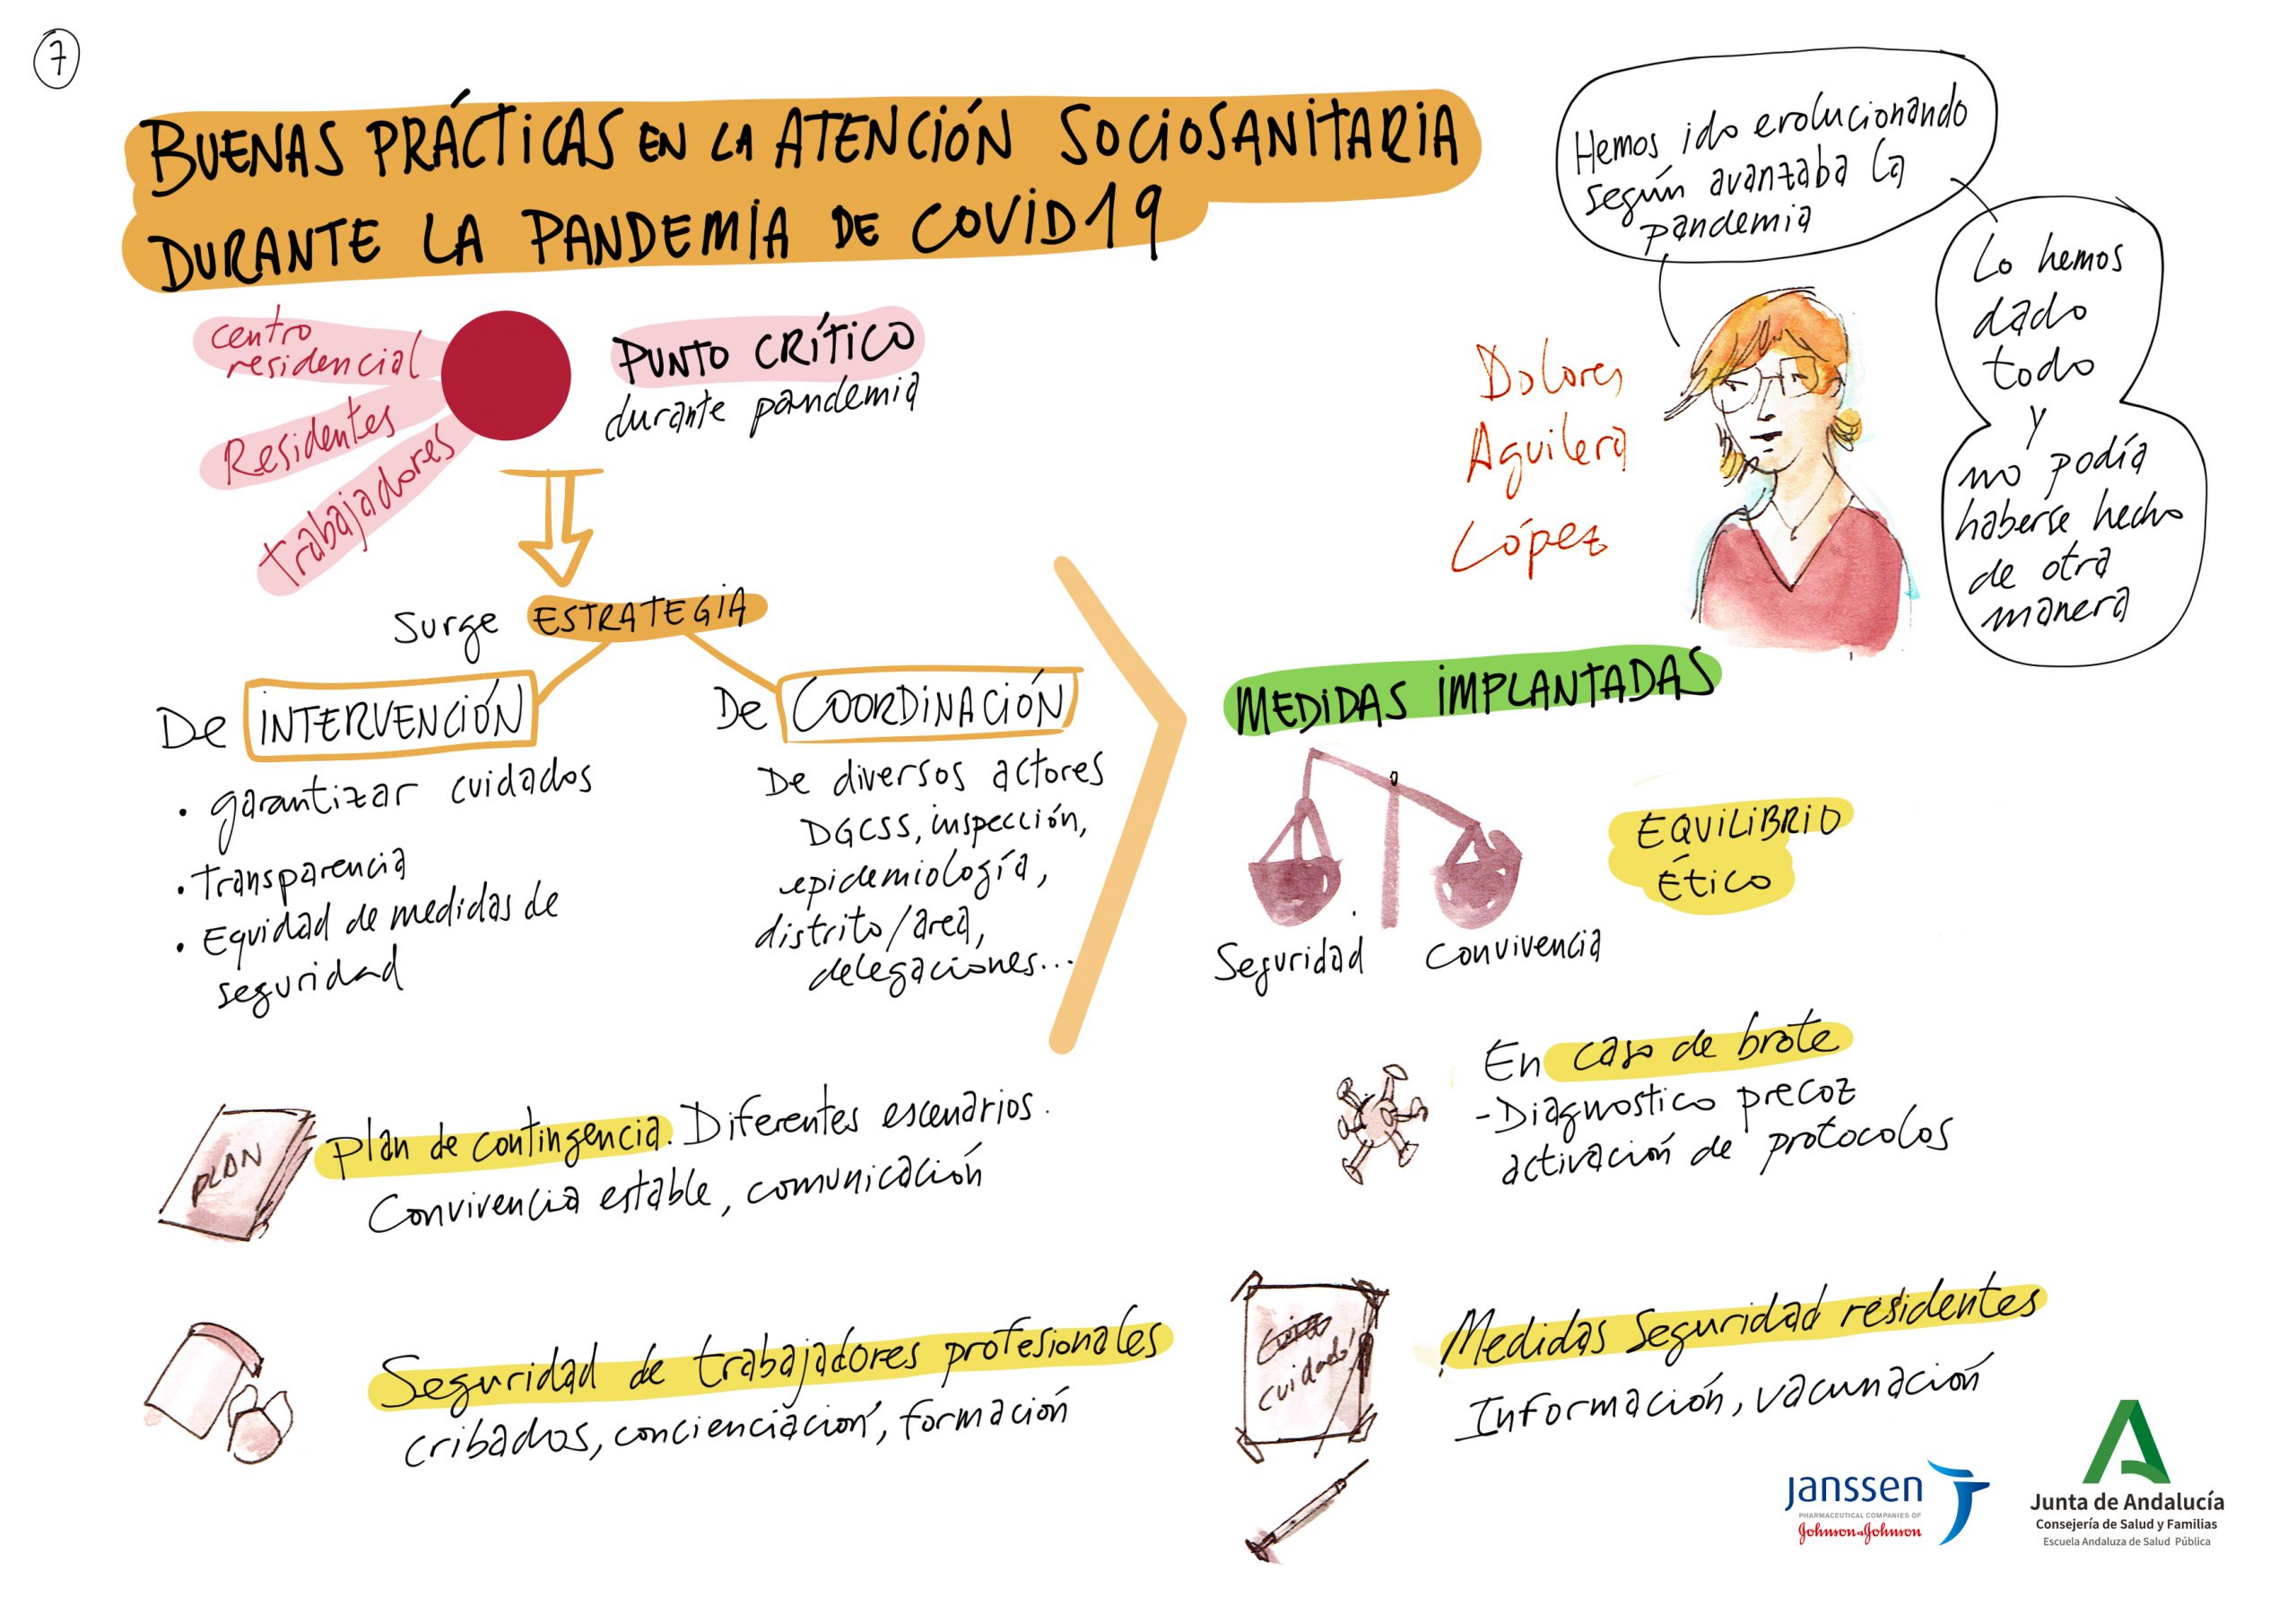 7
BUENAS PRÁCTICAS EN LA ATENCIÓN SOCIOSANITARIA
DURANTE LA PANDEMIA DE COVID19
Hemos ido evolucionando
según avanzaba la
pandemia
Lo hemos
dado
todo
y
no podía
haberse hecho
de otra
manera
Dolores
Aguilera
López
centro
residencial
Residentes
trabajadores
PUNTO CRÍTICO
durante pandemia
Surge ESTRATEGIA
De INTERVENCIÓN
• garantizar cuidados
• Transparencia
• Equidad de medidas de
seguridad
De COORDINACIÓN
De diversos actores
DGCSS, inspección,
epidemiología,
distrito/área,
delegaciones...
MEDIDAS IMPLANTADAS
Seguridad
Convivencia
EQUILIBRIO
ÉTICO
PLAN
plan de contingencia. Diferentes escenarios.
Convivencia estable, comunicación
En caso de brote
- Diagnostico precoz
activación de protocolos
Seguridad de trabajadores profesionales
cribados, concienciación, formación
cuidado!
Medidas seguridad residentes
Información, vacunación
janssen
PHARMACEUTICAL COMPANIES OF
Johnson & Johnson
Junta de Andalucía
Consejería de Salud y Familias
Escuela Andaluza de Salud Pública